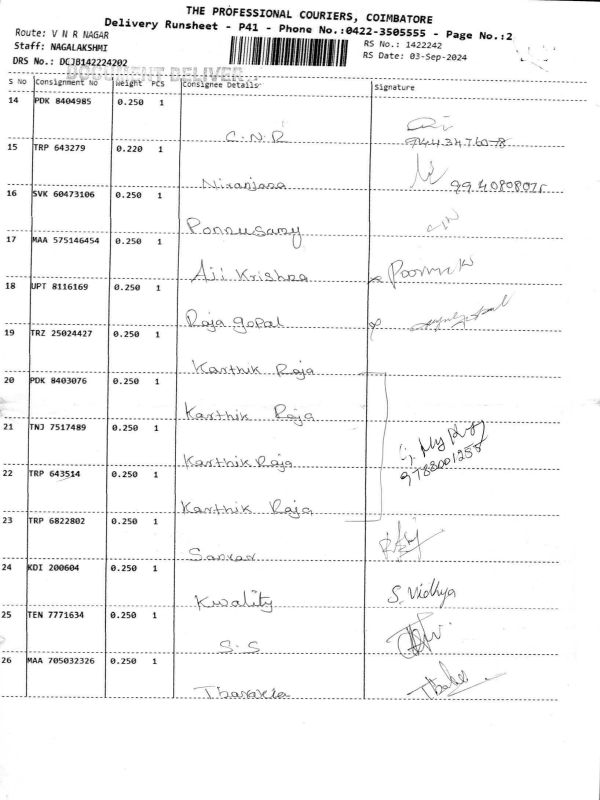 THE PROFESSIONAL COURIERS, COIMBATORE
Delivery Runsheet - P41 - Phone No.:0422-3505555 - Page No.:2
Route: V N R NAGAR
Staff: NAGALAKSHMI
RS No.: 1422242
RS Date: 03-Sep-2024
DRS No.: DCJB142224202
DOCUMENT DELIVER
S No Consignment No Weight PCS Consignee Details Signature
14 PDK 8404985 0.250 1
C.N.R
15 TRP 643279 0.220 1
Niranjana
16 SVK 60473106 0.250 1
Ponnusamy
17 MAA 575146454 0.250 1
Aji Krishna
18 UPT 8116169 0.250 1
Raja gopal
19 TRZ 25024427 0.250 1
Karthik Raja
20 PDK 8403076 0.250 1
Karthik Raja
21 TNJ 7517489 0.250 1
Karthik Raja
9788001255
22 TRP 643514 0.250 1
Karthik Raja
23 TRP 6822802 0.250 1
24 KDI 200604 0.250 1
Kwality S. Vidhya
25 TEN 7771634 0.250 1
S.S
26 MAA 705032326 0.250 1